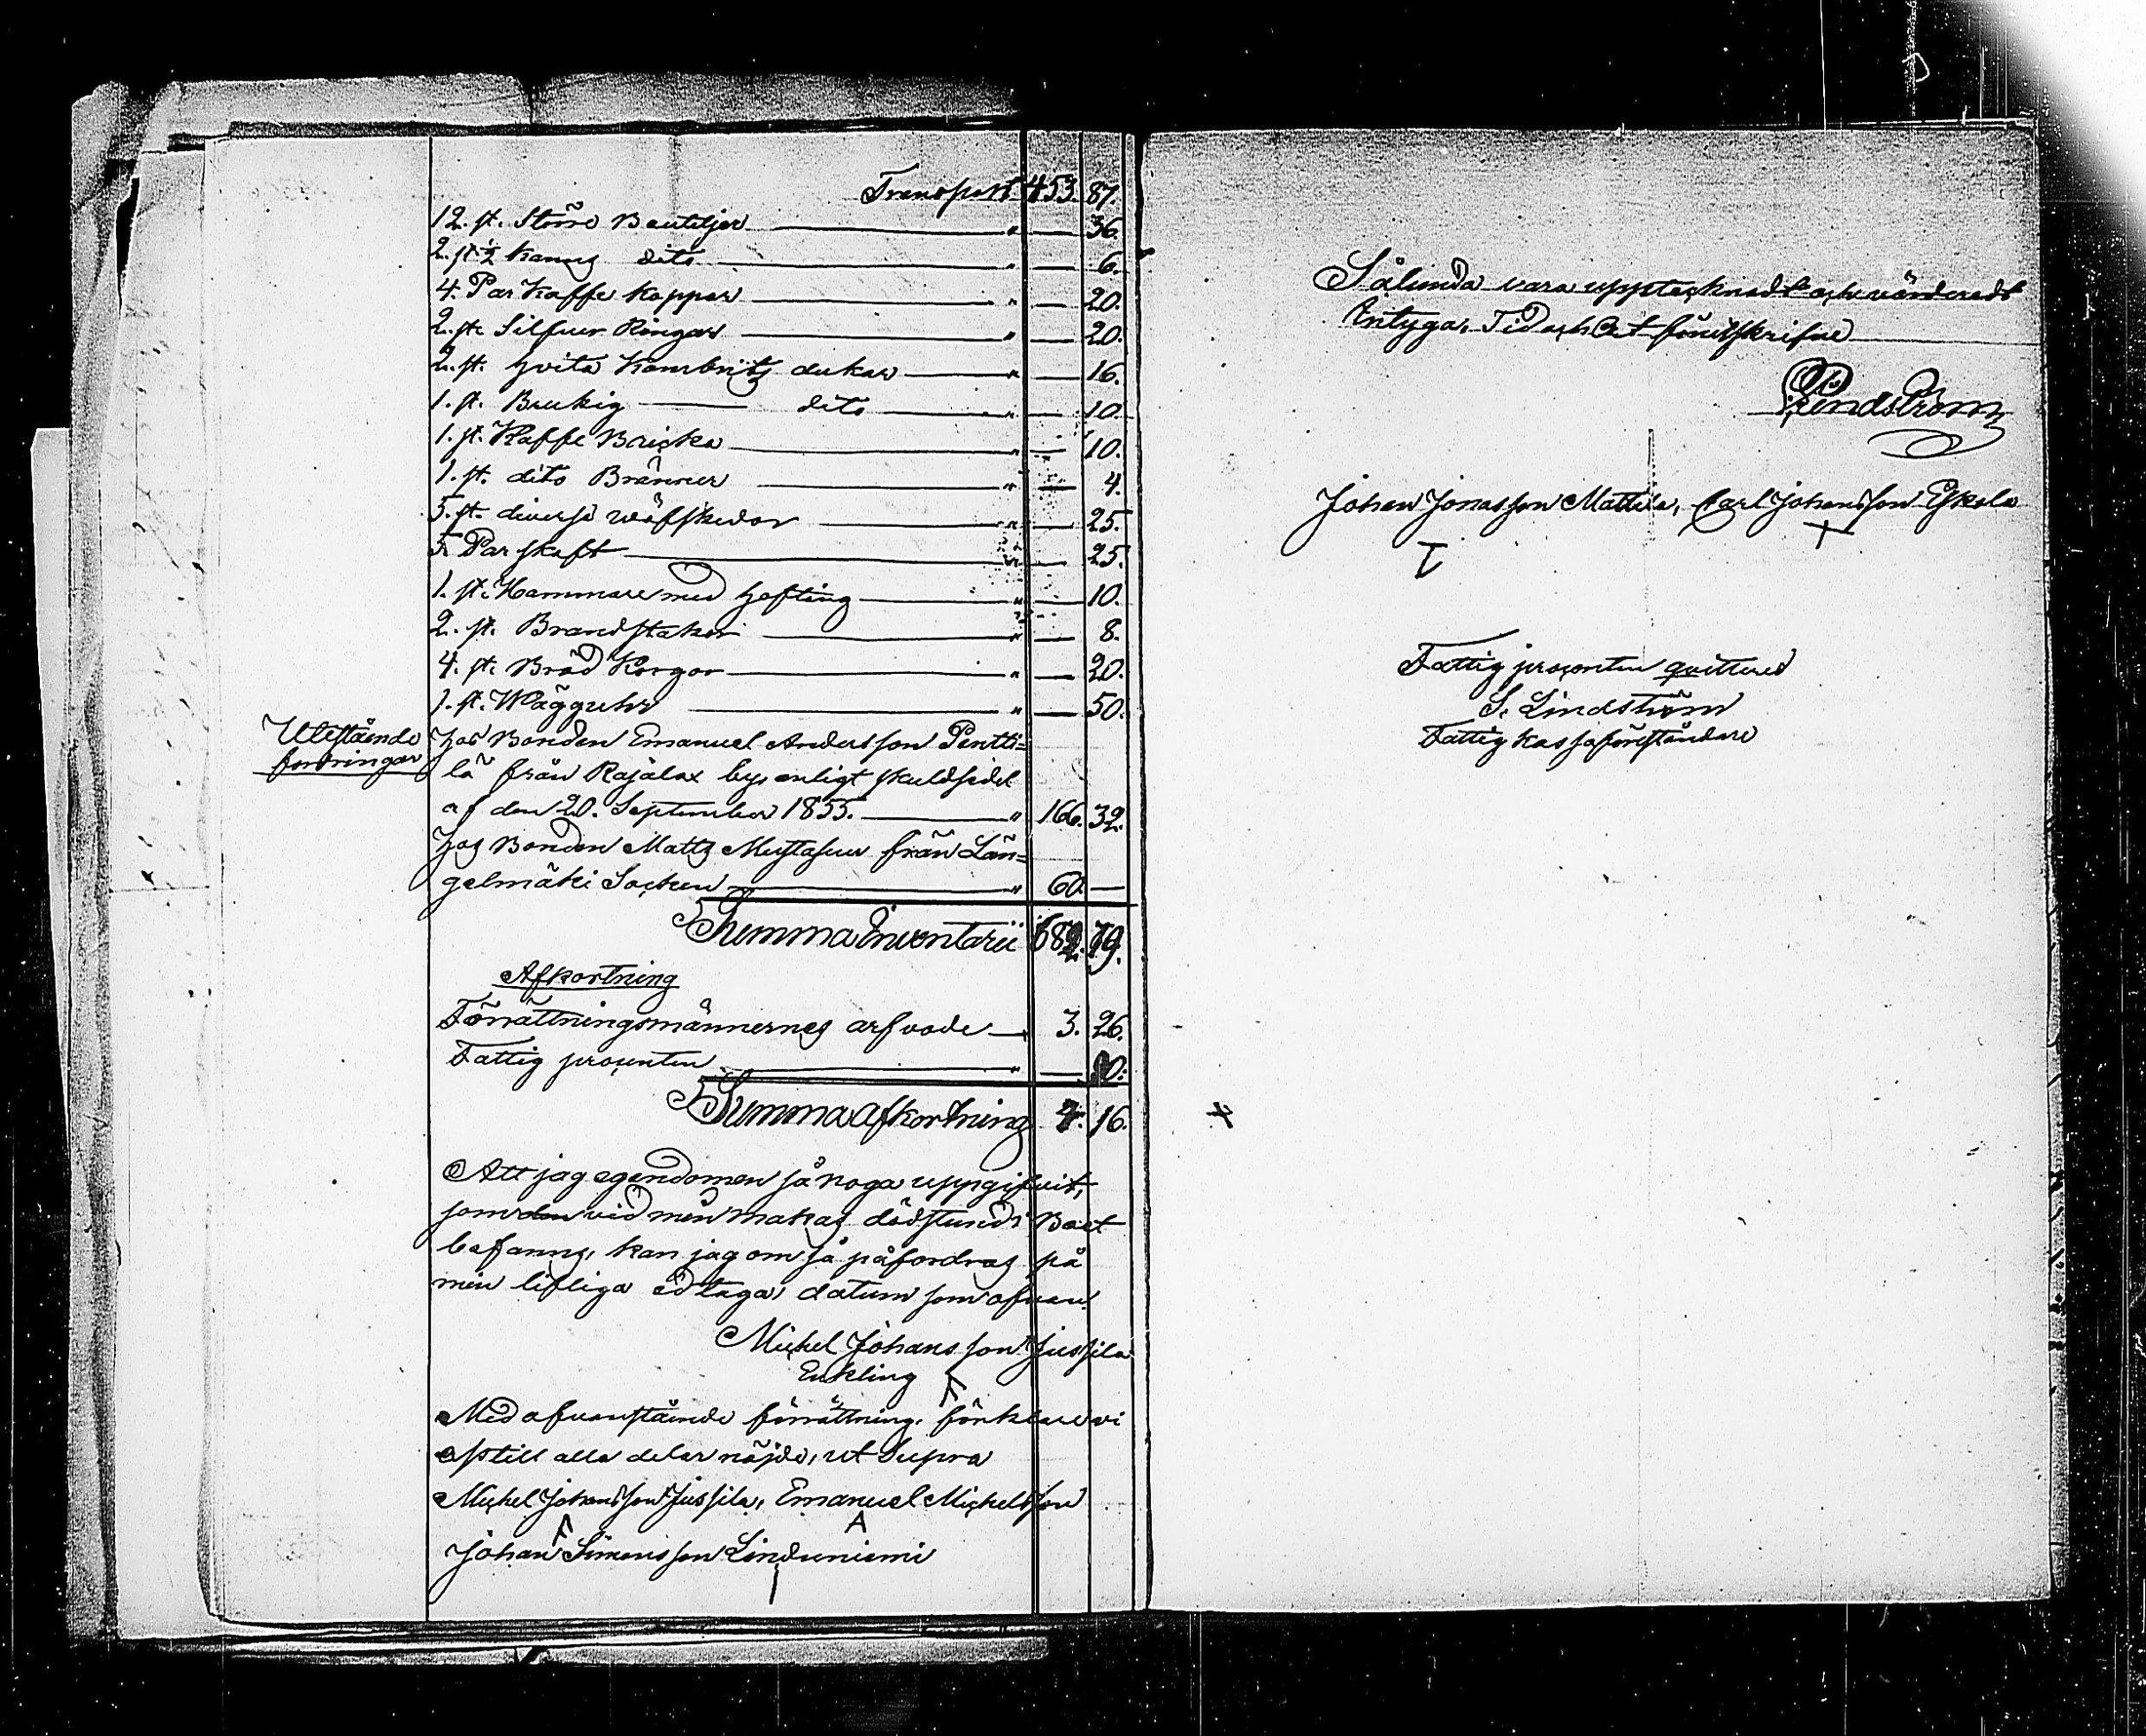 Transport 453. 87.
12. st. Större Bouteljer " — 36.
2. st ½ Kanns dito " — 6.
4. Par Kaffe koppar " — 20.
2. st. Silfver Ringar " — 20.
2. st. hvita Kambritz dukar " — 16.
1. st. Brukig dito " — 10.
1. st. Kaffe Bricka " — 10.
1. st. dito Bränner " — 4.
5. st. diverse wäfskedar " — 25.
5 Par skaft " — 25.
1. st. Hammare med Hoftång " — 10.
2. st. Brandstakor " — 8.
4. st. Bröd Korgar " — 20.
1. st. Wägguhr " — 50.
Utestående
fordringar
hos Bonden Emanuel Andersson Pentti=
lä från Rajalax by, enligt skuldsedel
af den 20. September 1855. " 166. 32.
hos Bonden Matts Mustasuu från Län=
gelmäki Socken " 60. —
Summa Inventarii 682. 79.
Afkortning
Förrättningsmännernes arfvode 3. 26.
Fattig procenten " — 90.
Summa afkortning 4. 16.
Att jag egendomen så noga uppgifvit,
som den vid min makas dödstund i Boet
befanns, kan jag om så påfordras på
min lifliga ed taga, datum som ofvan.
Michel Johansson Jussila
Enkling
Med ofvanstående förrättning, förklare vi
oss till alla delar nöjde, ut Supra
Michel Johansson Jussila, Emanuel Michelsson
Johan Simonsson Linduniemi
Sålunda vara upptecknadt och värderadt
Intyga, Tid och Ort förutskrifne
Lindström
Johan Jonasson Mattila, Carl Johansson Eskola
Fattig procenten qvitteras
S. Lindström
Fattigkassaföreståndare